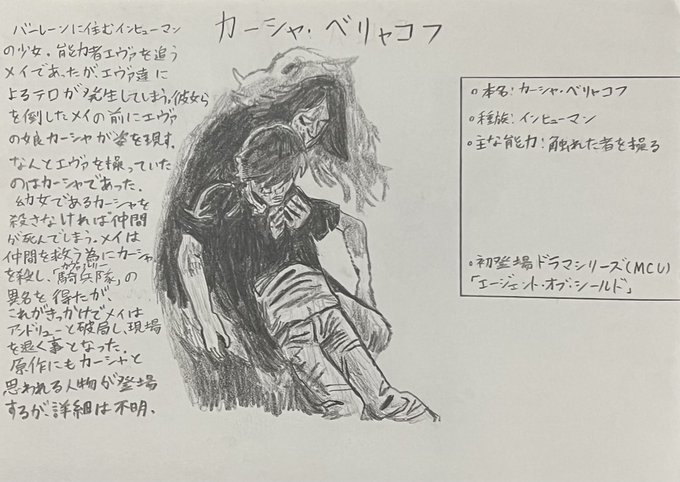 カーシャ・ベリャコフ
バーレーンに住むインヒューマン
の少女。能力者エヴァを追う
メイであったがエヴァ達に
よるテロが発生してしまう。彼女ら
を倒したメイの前にエヴァ
の娘カーシャが姿を現す。
なんとエヴァを操っていた
のはカーシャであった。
幼女であるカーシャを
殺さなければ仲間
が死んでしまう。メイは
仲間を救う為にカーシャ
を殺し、「騎兵隊」の
異名を得たが、
これがきっかけでメイは
アンドリューと破局し、現場
を退く事となった。
原作にもカーシャと
思われる人物が登場
するが、詳細は不明。
○本名:カーシャ・ベリャコフ
○種族:インヒューマン
○主な能力:触れた者を操る
○初登場ドラマシリーズ(MCU)
「エージェント・オブ・シールド」